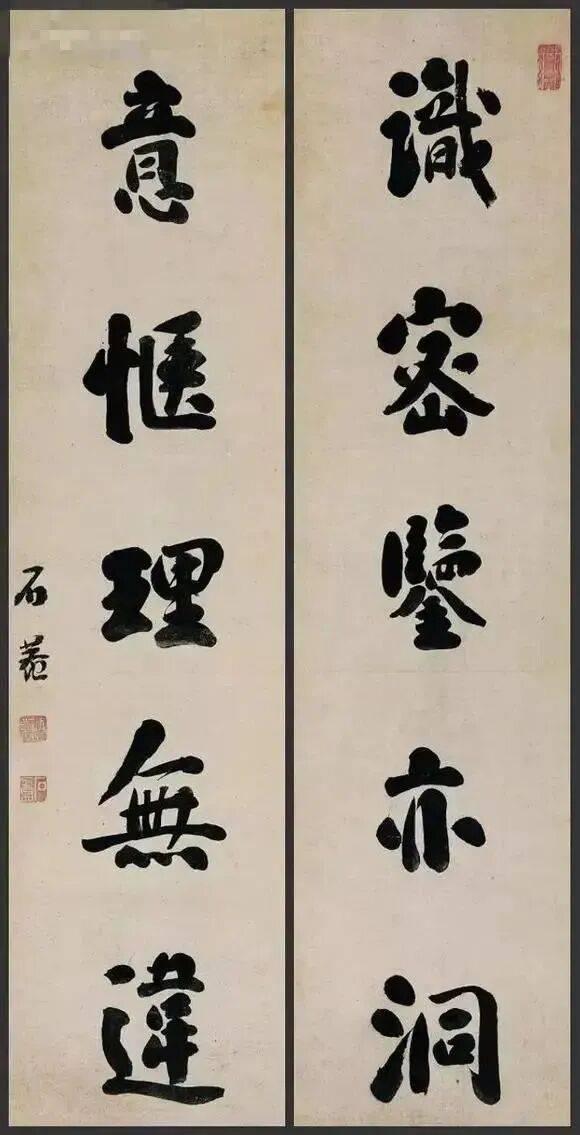 識密鑒亦洞
意愜理無違
石菴